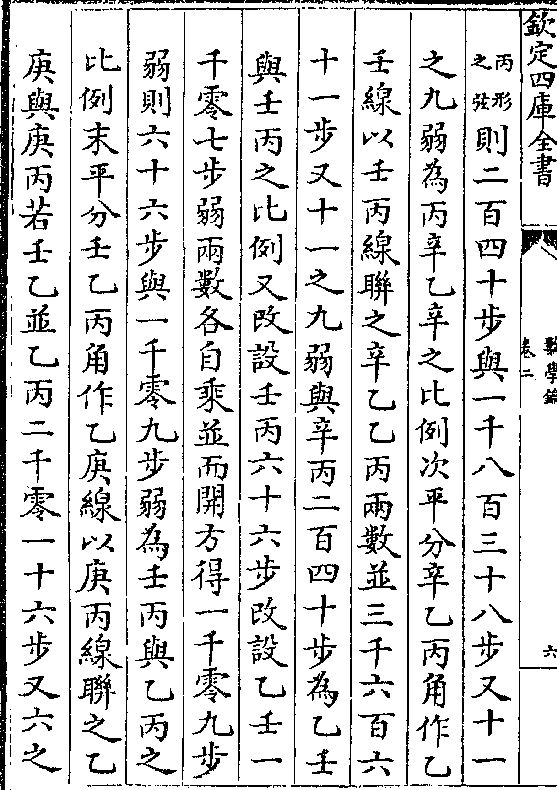 欽定四庫全書
數學鑰
卷二
六
丙形之弦則二百四十步與一千八百三十八步又十一
之九弱為丙辛乙辛之比例次平分辛乙丙角作乙
壬線以壬丙線聯之辛乙乙丙兩數並三千六百六
十一步又十一之九弱與辛丙二百四十步為乙壬
與壬丙之比例又改設壬丙六十六步改設乙壬一
千零七步弱兩數各自乘並而開方得一千零九步
弱則六十六步與一千零九步弱為壬丙與乙丙之
比例末平分壬乙丙角作乙庚線以庚丙線聯之乙
庚與庚丙若壬乙並乙丙二千零一十六步又六之